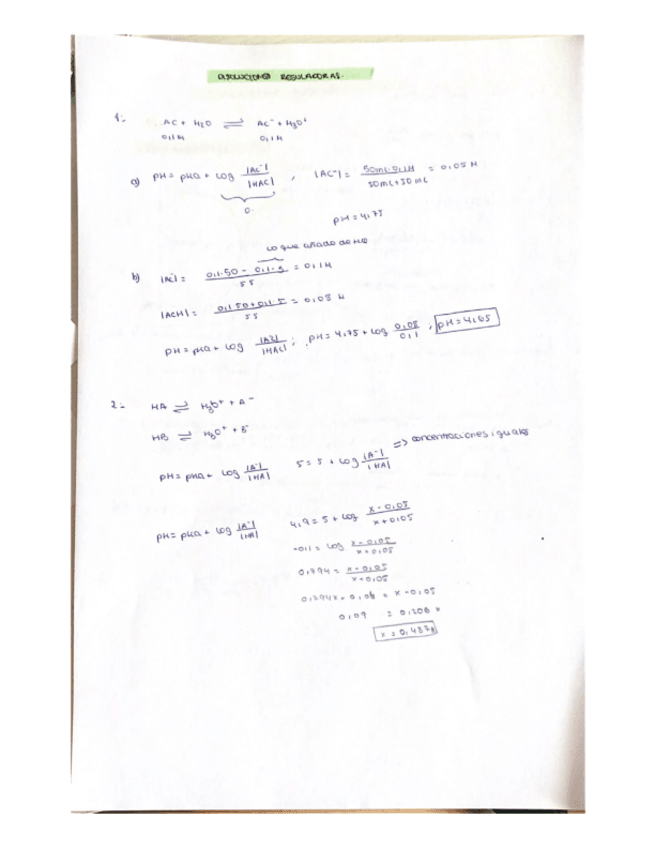 DISOLUCIONES REGULADORAS.
1:- AC + H2O ⇌ AC⁻ + H3O⁺
0,1M 0,1M
a) PH = pka + log |AC⁻|/|HAC| , |AC⁻| = 50mL·0,1M/50mL+50mL = 0,05 M
0.
pH = 4,75
lo que añado de
b) |AC⁻| = 0,1·50 - 0,1·5/55 = 0,1M
|ACH| = 0,1·50+0,1·5/55 = 0,08 M
pH = pka + log |AC⁻|/|HAC| ; pH = 4,75 + log 0,08/0,1 ; pH = 4,65
2:- HA ⇌ H3O⁺ + A⁻
HB ⇌ H3O⁺ + B⁻
pH = pka + log |A⁻|/|HA| 5 = 5 + log |A⁻|/|HA| => concentraciones iguales
pH = pka + log |A⁻|/|HA| 4,9 = 5 + log x - 0,05/x + 0,05
-0,1 = log x - 0,05/x + 0,05
0,794 = x - 0,05/x + 0,05
0,794x + 0,04 = x - 0,05
0,09 = 0,206 x
x = 0,437